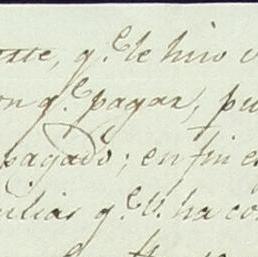 q.e le hizo
q.e pagar, pu
pagado; en fin e
ilias q.e V. ha co